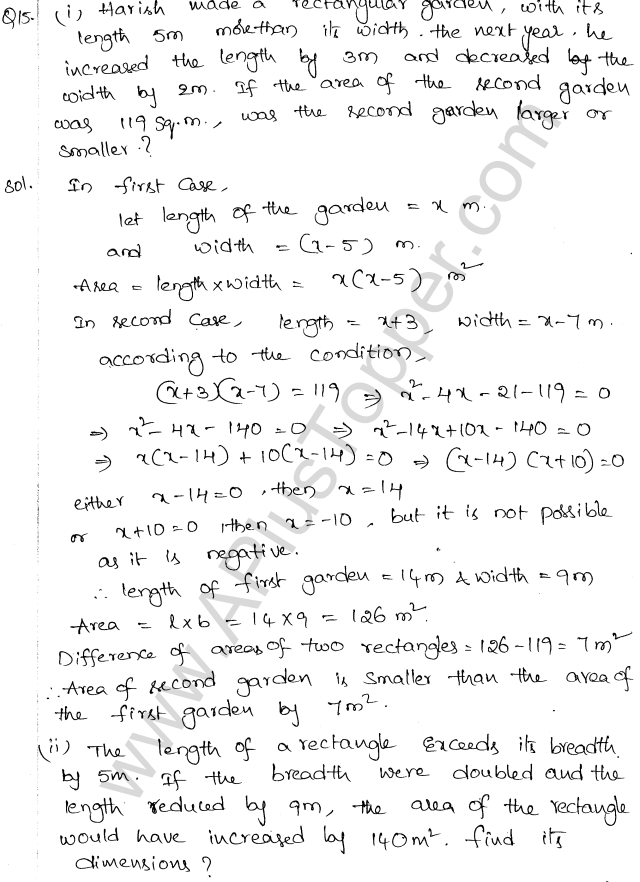 Q15. (i) Harish made a rectangular garden, with its
length 5m more than its width. the next year, he
increased the length by 3m and decreased the
width by 2m. If the area of the second garden
was 119 sq.m., was the second garden larger or
smaller?
Sol. In first case,
let length of the garden = x m.
and width = (x-5) m.
Area = length × width = x(x-5) m²
In second case, length = x+3, width = x-7 m.
according to the condition,
(x+3)(x-7) = 119 ⇒ x²-4x-21-119=0
⇒ x²-4x-140=0 ⇒ x²-14x+10x-140=0
⇒ x(x-14)+10(x-14)=0 ⇒ (x-14)(x+10)=0
either x-14=0, then x=14
or x+10=0, then x=-10, but it is not possible
as it is negative.
∴ length of first garden = 14m & width = 9m
Area = l×b = 14×9 = 126 m².
Difference of areas of two rectangles = 126-119 = 7m²
∴ Area of second garden is smaller than the area of
the first garden by 7m².
(ii) The length of a rectangle exceeds its breadth
by 5m. If the breadth were doubled and the
length reduced by 9m, the area of the rectangle
would have increased by 140m². find its
dimensions?
www.APlusTopper.com